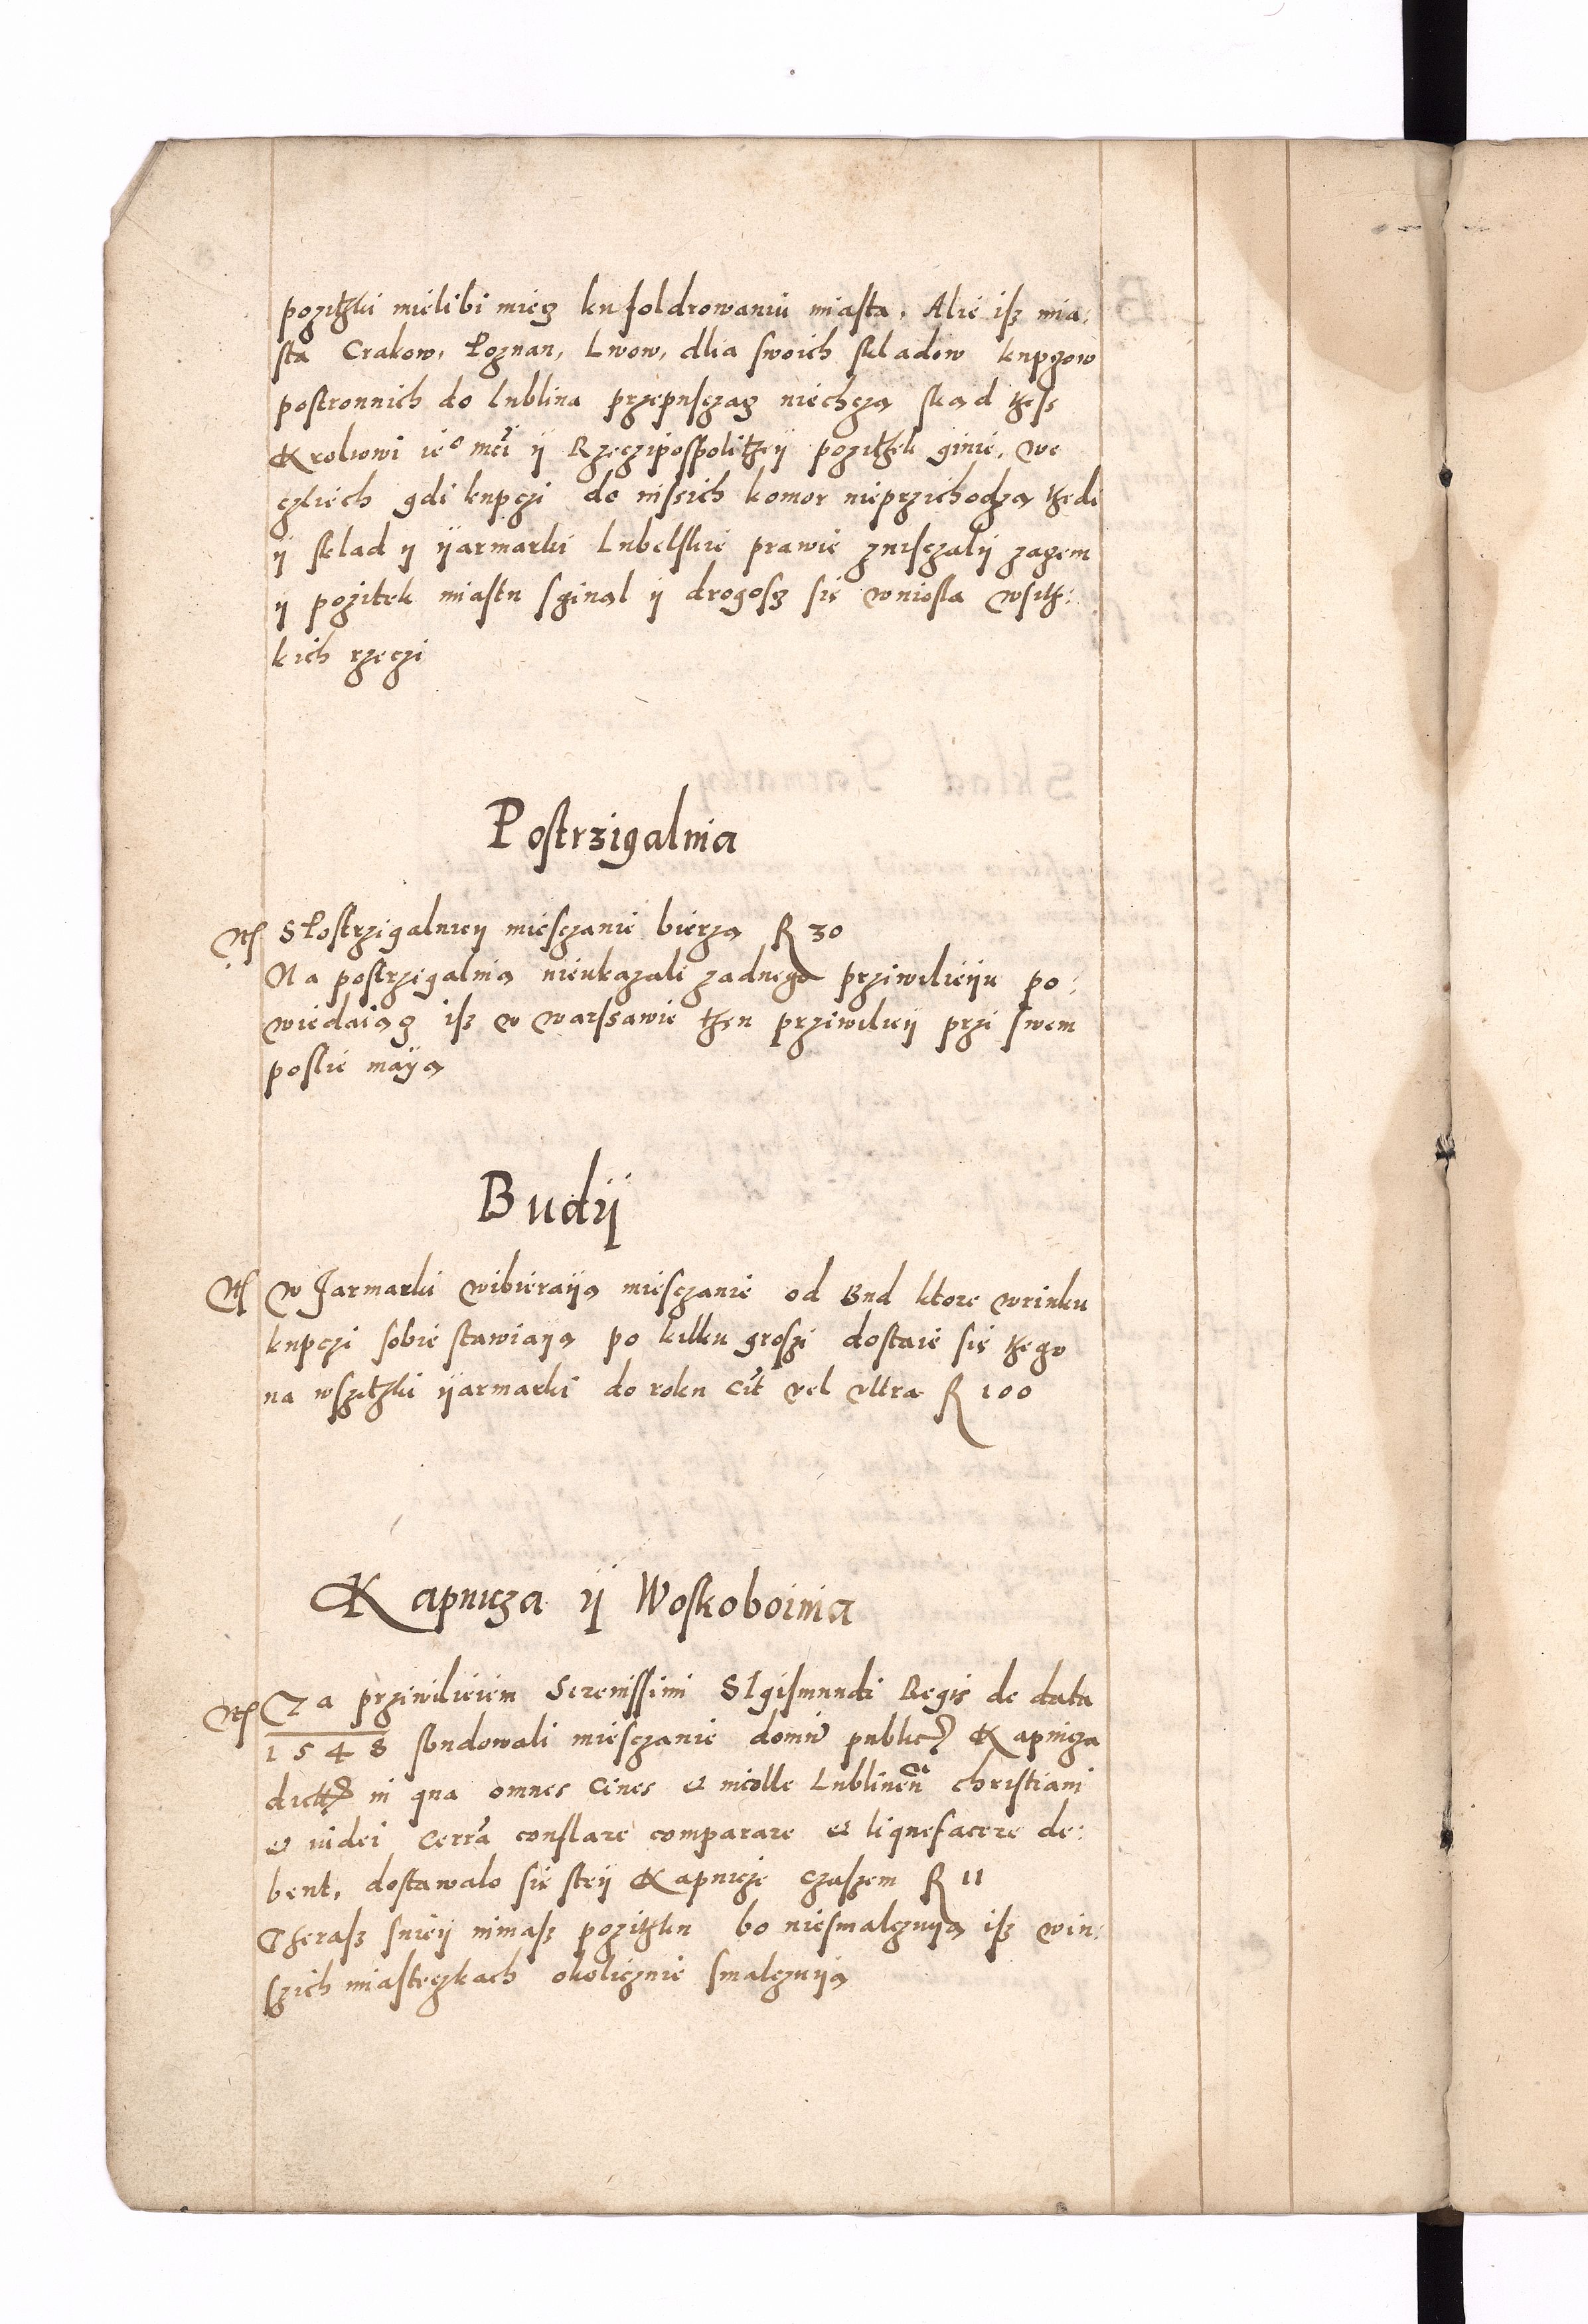 pozitzki mielibi miecz ku foldrowaniu miasta. Alie isz mia:
sta Crakow, Poznan, Lwow, dlia swoich skladow kupczow
postronnich do lublina przepusczacz niechcza skad tzesz
Kroliowi ie° mci ij Rzeczipospolitzeij pozitzek ginie, we
czliech gdi kupczi do nissich komor nieprzichodza tzedi
ij sklad ij ijarmarki Lubelskie prawie znisczalij zazem
ij pozitek miastu sginal ij drogosz sie wniosla wsitz:
kich rzeczi
Postrzigalnia
Nt SPostrzigalnieij miesczanie bierza R 30
Na postrzigalnia nieukazali zadnego prziwilieiju po:
wiedaiacz isz w warssawie tzen prziwilieij przi swem
poslie maija
Budij
Nt w Jarmarki wibieraija miesczanie od Bud ktore wrinku
kupczi sobie stawiaija po kilku groszi dostaie sie tzego
na wszitzki ijarmarki do roku cit vel ultra R 100
Kapnicza ij Woskoboinia
Nt Za prziwilieiem Serenissimi SIgismundi Regis de data
1548 fundowali miesczanie domu public Kapnicza
dict in qua omnes cives et incolle Lublinen christiani
et iudei cerra conflare comparare et liquefacere de:
bent, dostawalo sie steij Kapnicze czaszem R 11
Therasz snieij nimasz pozitzku bo niesmalczuija isz win:
szich miasteczkach okolicznie smalczuija